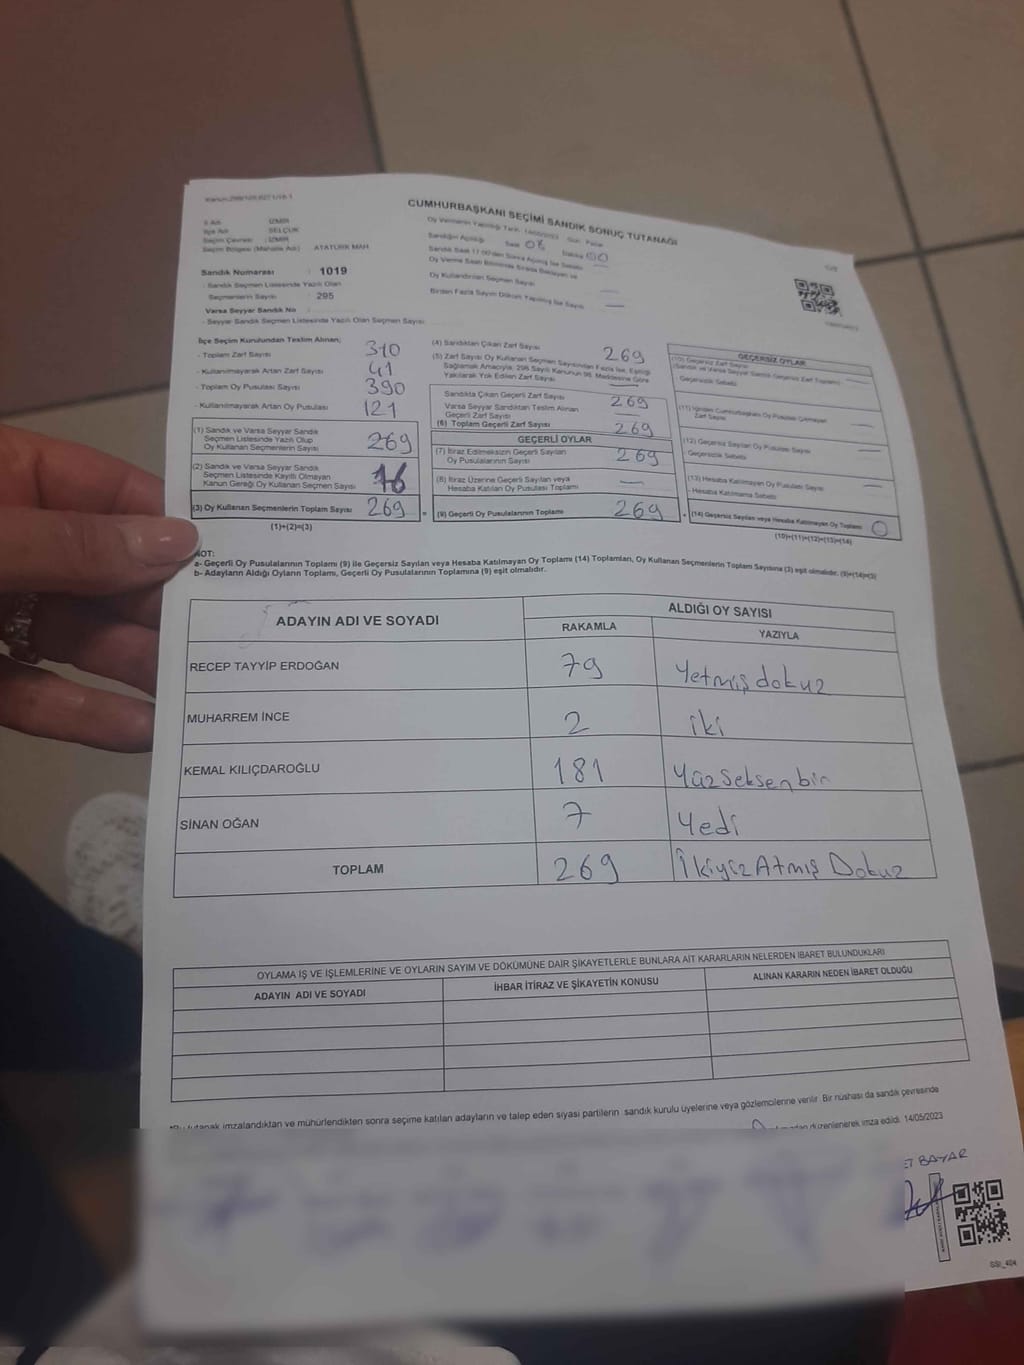 CUMHURBAŞKANI SEÇİMİ SANDIK SONUÇ TUTANAĞI
İl Adı : İZMİR
İlçe Adı : SELÇUK
Seçim Çevresi : İZMİR
Seçim Bölgesi (Mahalle Adı) : ATATÜRK MAH.
Sandık Numarası : 1019
- Sandık Seçmen Listesinde Yazılı Olan
Seçmenlerin Sayısı : 295
Varsa Seyyar Sandık No :
- Seyyar Sandık Seçmen Listesinde Yazılı Olan Seçmen Sayısı:
Oy Vermenin Yapıldığı Tarih: 14/05/2023 Gün: Pazar
Sandığın Açıldığı Saat 08 Dakika 00
Oy Kullandırılan Seçmen Sayısı —
Birden Fazla Sayım Döküm Yapılmış İse Sayısı —
İlçe Seçim Kurulundan Teslim Alınan;
- Toplam Zarf Sayısı 310
- Kullanılmayarak Artan Zarf Sayısı 41
- Toplam Oy Pusulası Sayısı 390
- Kullanılmayarak Artan Oy Pusulası 121
(1) Sandık ve Varsa Seyyar Sandık
Seçmen Listesinde Yazılı Olup
Oy Kullanan Seçmenlerin Sayısı 269
(2) Sandık ve Varsa Seyyar Sandık
Seçmen Listesinde Kayıtlı Olmayan
Kanun Gereği Oy Kullanan Seçmen Sayısı
(3) Oy Kullanan Seçmenlerin Toplam Sayısı 269
(1)+(2)=(3)
(4) Sandıktan Çıkan Zarf Sayısı 269
(5) Zarf Sayısı Oy Kullanan Seçmen Sayısından Fazla İse, Eşitliği
Sağlamak Amacıyla, 298 Sayılı Kanunun 98. Maddesine Göre
Yakılarak Yok Edilen Zarf Sayısı —
Sandıkta Çıkan Geçerli Zarf Sayısı 269
Varsa Seyyar Sandıktan Teslim Alınan
Geçerli Zarf Sayısı —
(6) Toplam Geçerli Zarf Sayısı 269
GEÇERLİ OYLAR
(7) İtiraz Edilmeksizin Geçerli Sayılan
Oy Pusulalarının Sayısı 269
(8) İtiraz Üzerine Geçerli Sayılan veya
Hesaba Katılan Oy Pusulası Toplamı —
(9) Geçerli Oy Pusulalarının Toplamı 269
GEÇERSİZ OYLAR
(10) Geçersiz Zarf Sayısı
(Sandık ve Varsa Seyyar Sandık Geçersiz Zarf Toplamı) —
- Geçersizlik Sebebi
(11) İçinden Cumhurbaşkanı Oy Pusulası Çıkmayan
Zarf Sayısı —
(12) Geçersiz Sayılan Oy Pusulası Sayısı —
- Geçersizlik Sebebi
(13) Hesaba Katılmayan Oy Pusulası Sayısı —
- Hesaba Katılmama Sebebi
(14) Geçersiz Sayılan veya Hesaba Katılmayan Oy Toplamı 0
(10)+(11)+(12)+(13)=(14)
NOT:
a- Geçerli Oy Pusulalarının Toplamı (9) ile Geçersiz Sayılan veya Hesaba Katılmayan Oy Toplamı (14) Toplamları, Oy Kullanan Seçmenlerin Toplam Sayısına (3) eşit olmalıdır. (9)+(14)=(3)
b- Adayların Aldığı Oyların Toplamı, Geçerli Oy Pusulalarının Toplamına (9) eşit olmalıdır.
ADAYIN ADI VE SOYADI ALDIĞI OY SAYISI
RAKAMLA YAZIYLA
RECEP TAYYİP ERDOĞAN 79 Yetmiş dokuz
MUHARREM İNCE 2 iki
KEMAL KILIÇDAROĞLU 181 Yüz Seksen bir
SİNAN OĞAN 7 Yedi
TOPLAM 269 İkiyüz Atmış Dokuz
OYLAMA İŞ VE İŞLEMLERİNE VE OYLARIN SAYIM VE DÖKÜMÜNE DAİR ŞİKAYETLERLE BUNLARA AİT KARARLARIN NELERDEN İBARET BULUNDUKLARI
ADAYIN ADI VE SOYADI İHBAR İTİRAZ VE ŞİKAYETİN KONUSU ALINAN KARARIN NEDEN İBARET OLDUĞU
*Bu tutanak imzalandıktan ve mühürlendikten sonra seçime katılan adayların ve talep eden siyasi partilerin sandık kurulu üyelerine veya gözlemcilerine verilir. Bir nüshası da sandık çevresinde
düzenlenerek imza edildi. 14/05/2023
BAYAR